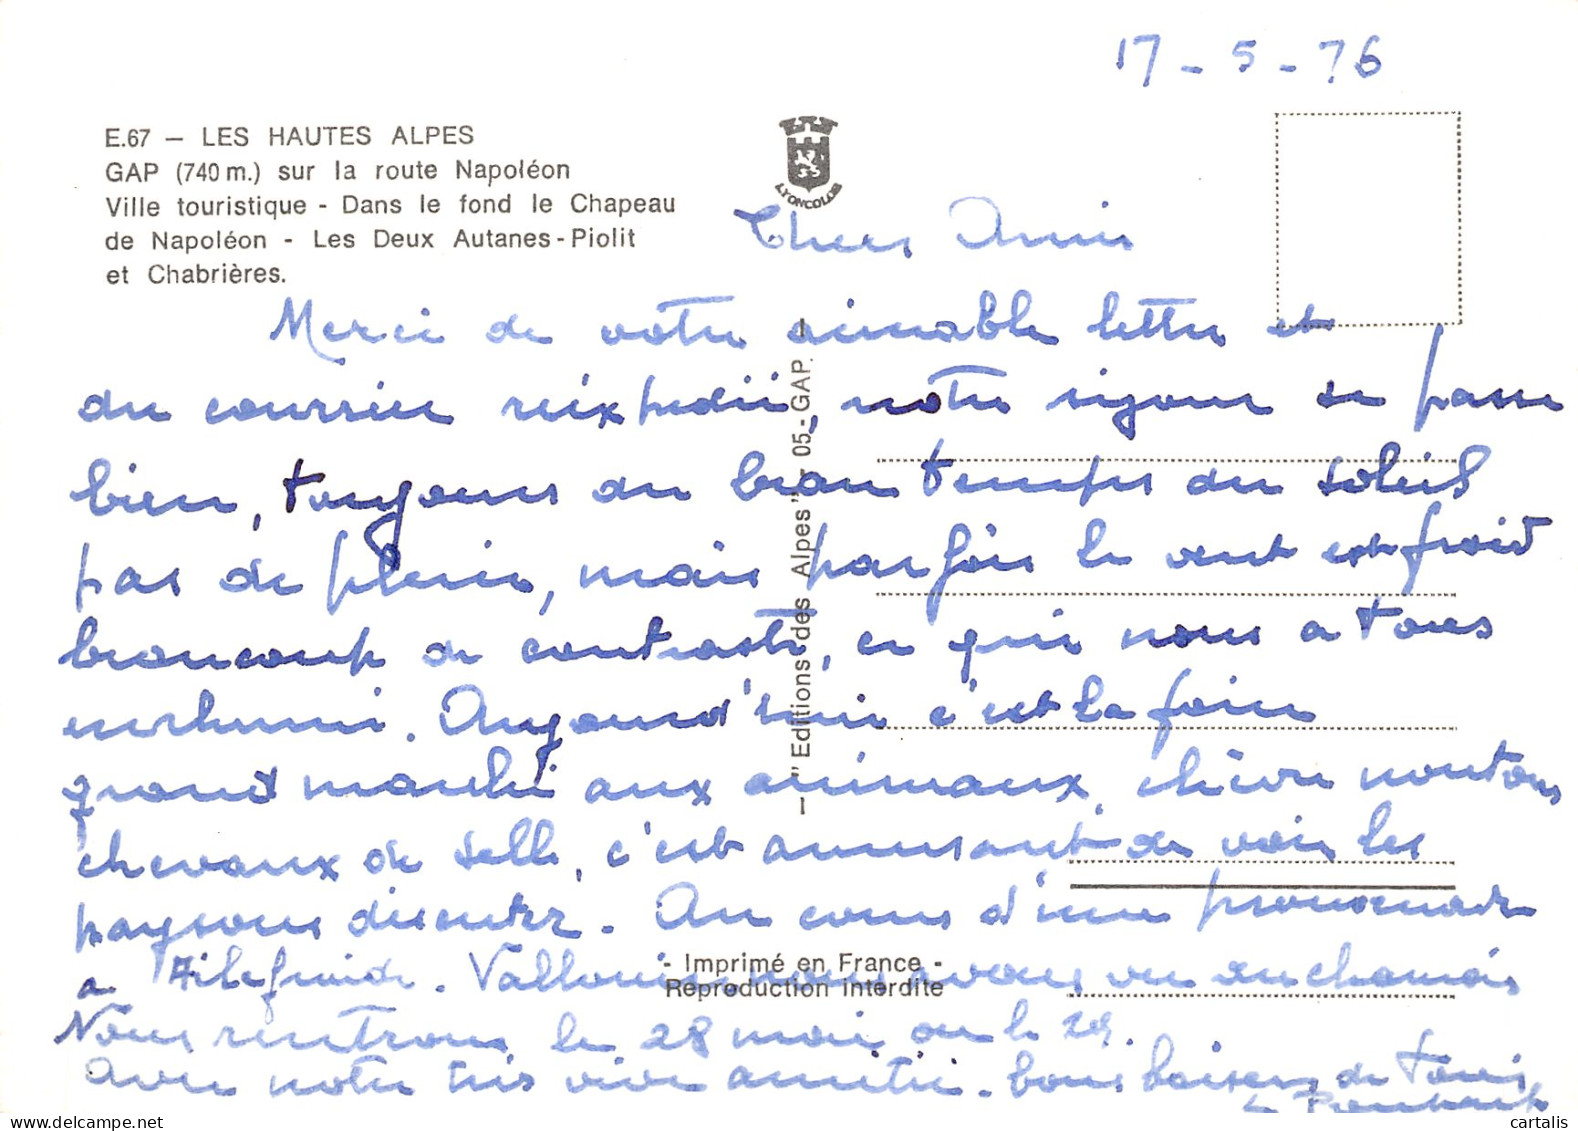 17 - 5 - 76
E.67 — LES HAUTES ALPES
GAP (740 m.) sur la route Napoléon
Ville touristique - Dans le fond le Chapeau
de Napoléon - Les Deux Autanes - Piolit
et Chabrières.
LYONCOLOR
Chers Amis
Merci de votre aimable lettre et
du courrier réexpédié, notre séjour se passe
bien, toujours du beau temps du soleil
pas de pluie, mais parfois le vent est froid
beaucoup de contraste, ce qui nous a tous
enrhumé. Aujourd'hui c'est la foire
grand marché aux animaux, chèvre moutons
chevaux de selle, c'est amusant de voir les
paysans discuter. Au cours d'une promenade
a Ailefroide. Vallouise nous avons vu un chamois
Nous rentrons le 28 mai ou le 29.
Avec notre très vive amitié. bons baisers de tous
— "Editions des Alpes" - 05 - GAP. —
- Imprimé en France -
Reproduction interdite
cartalis